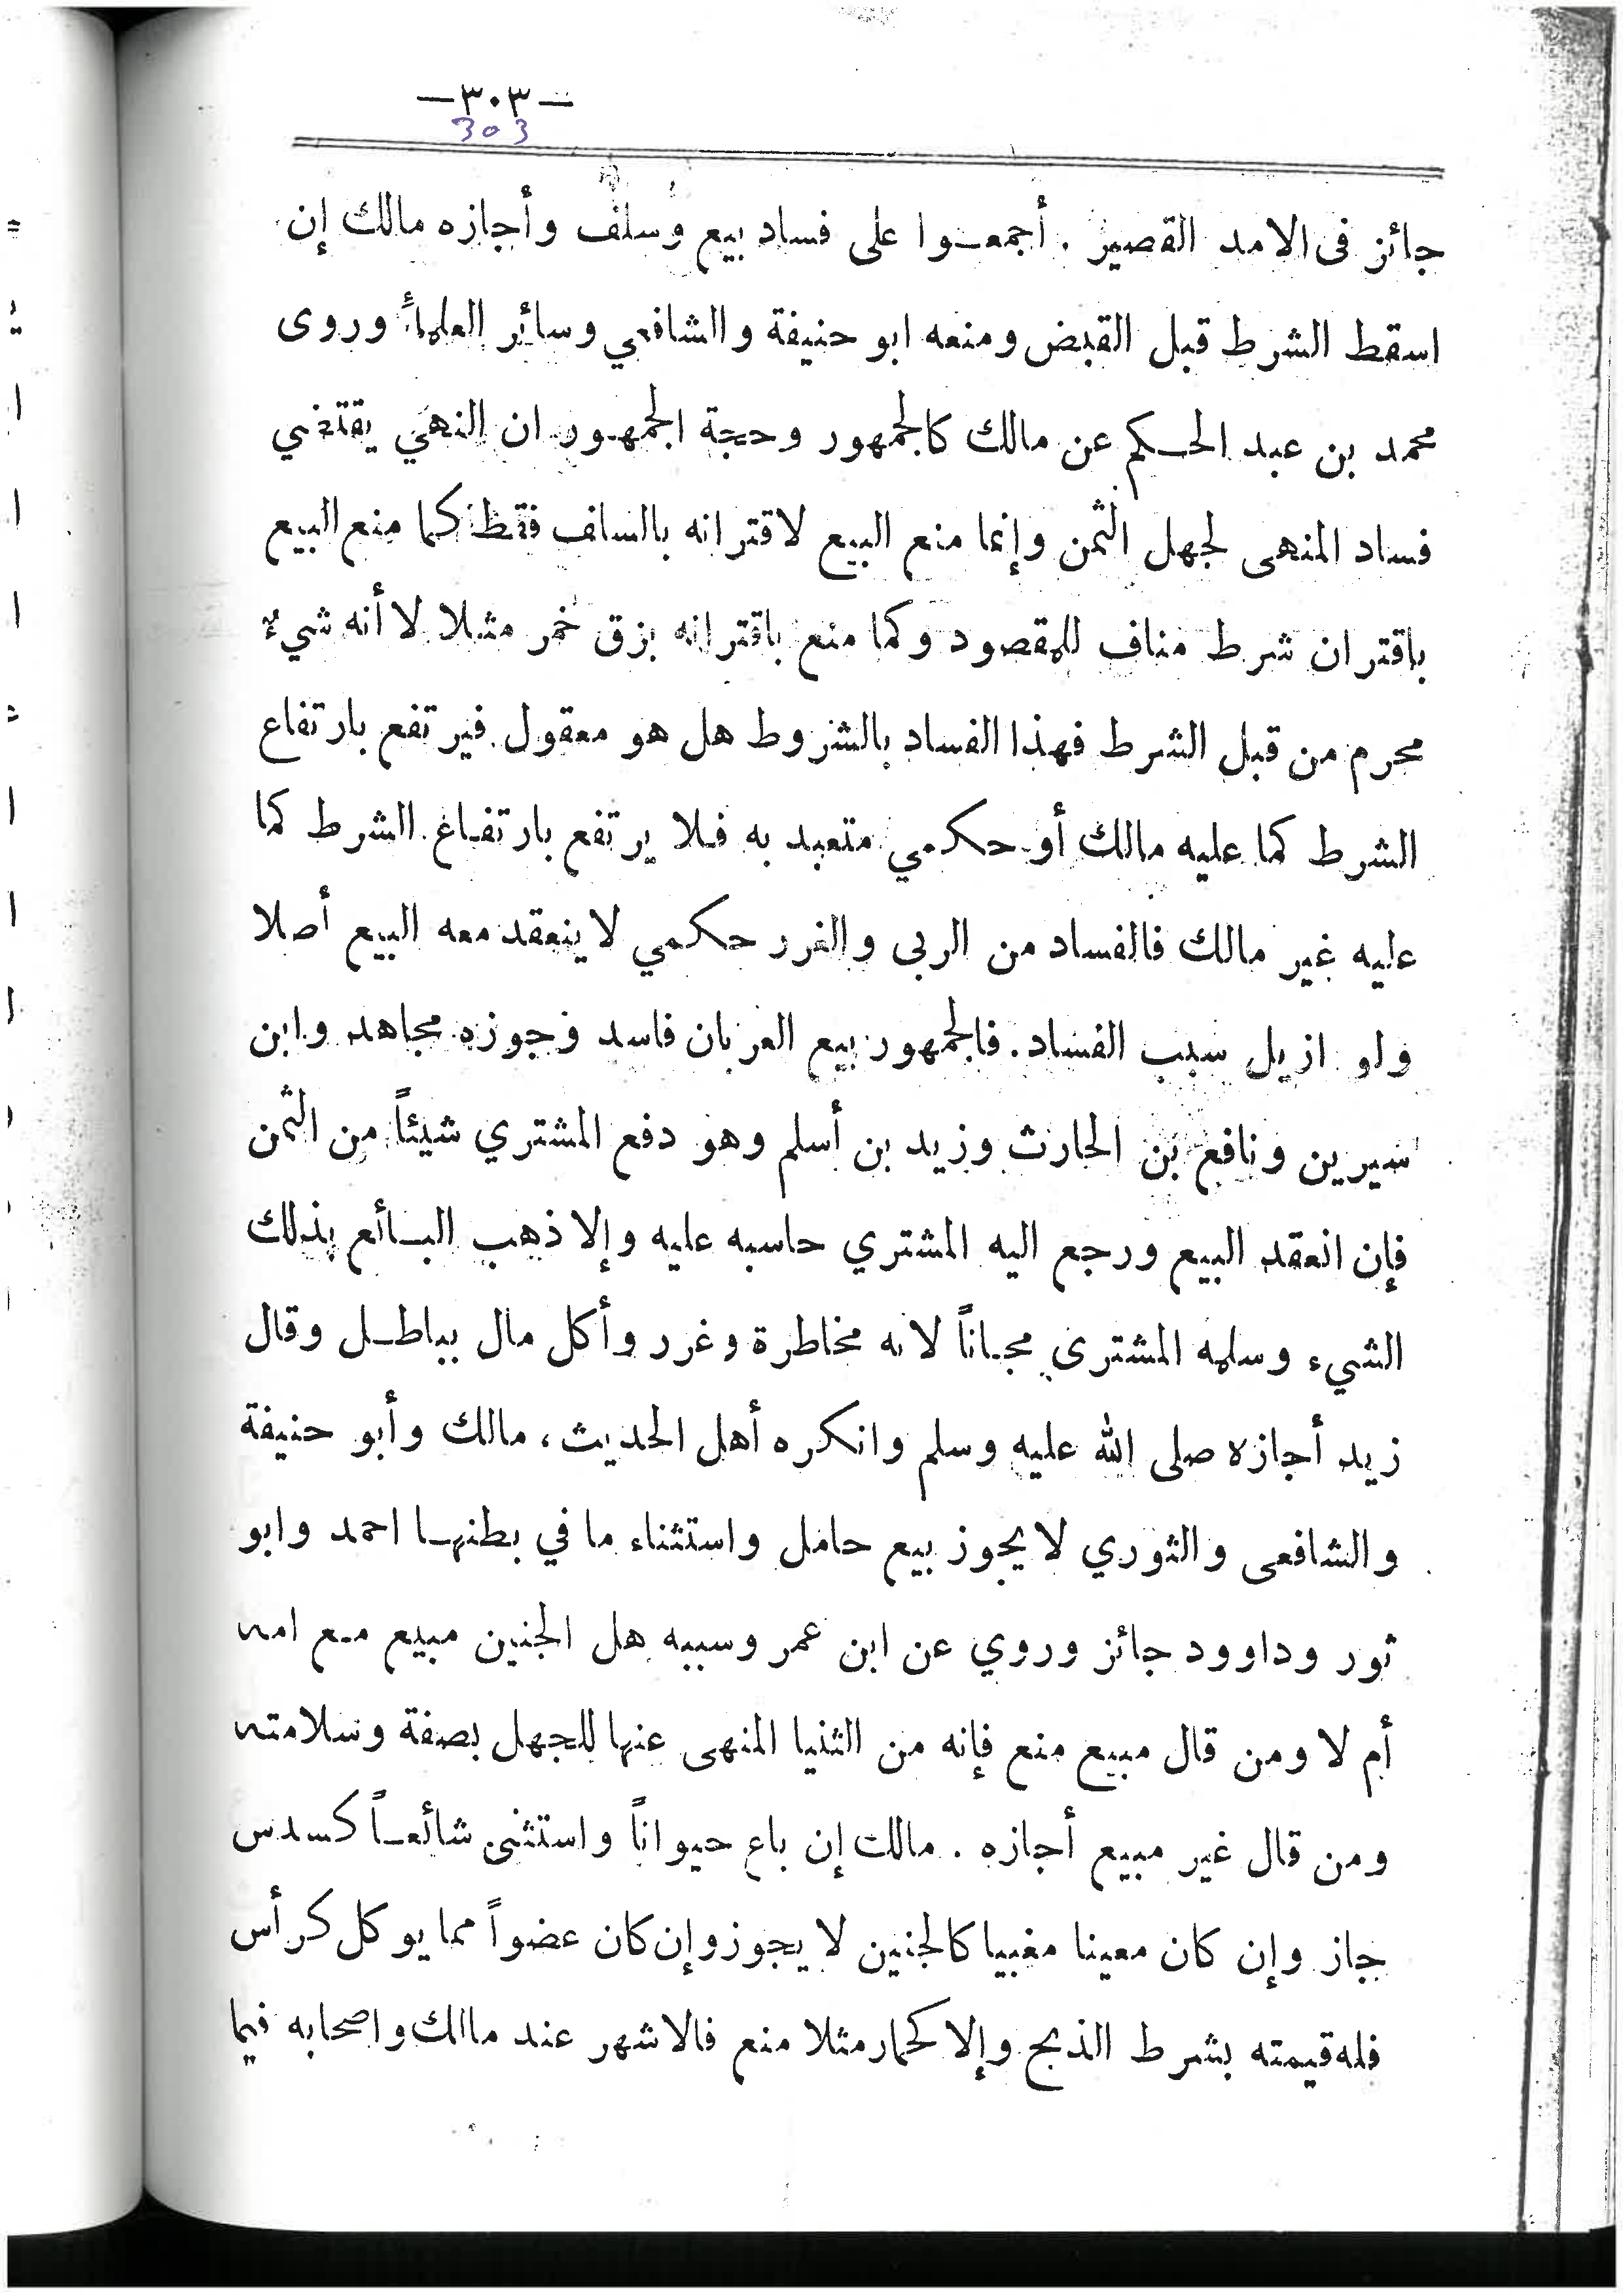 —٣٠٣—
303
جائز فى الامد القصير . أجمعوا على فساد بيع وسلف وأجازه مالك إن
اسقط الشرط قبل القبض ومنعه ابو حنيفة والشافعي وسائر العلمأ وروى
محمد بن عبد الحكم عن مالك كالجمهور وحجة الجمهور ان النهي يقتضي
فساد المنهى لجهل الثمن وإنما منع البيع لاقترانه بالسلف فقط كما منع البيع
باقتران شرط مناف للمقصود وكما منع باقترانه بزق خمر مثلا لا أنه شيء
محرم من قبل الشرط فهذا الفساد بالشروط هل هو معقول فيرتفع بارتفاع
الشرط كما عليه مالك أو حكمي متعبد به فلا يرتفع بارتفاع الشرط كما
عليه غير مالك فالفساد من الربى والغرر حكمي لا ينعقد معه البيع أصلا
ولو ازيل سبب الفساد . فالجمهور بيع العربان فاسد وجوزه مجاهد وابن
سيرين ونافع بن الحارث وزيد بن أسلم وهو دفع المشتري شيئاً من الثمن
فإن انعقد البيع ورجع اليه المشتري حاسبه عليه وإلا ذهب البائع بذلك
الشيء وسلمه المشترى مجاناً لانه مخاطرة وغرر وأكل مال بباطل وقال
زيد أجازه صلى الله عليه وسلم وانكره أهل الحديث ، مالك وأبو حنيفة
والشافعى والثوري لا يجوز بيع حامل واستثناء ما في بطنها احمد وابو
ثور وداوود جائز وروي عن ابن عمر وسببه هل الجنين مبيع مع امه
أم لا ومن قال مبيع منع فإنه من الثنيا المنهى عنها للجهل بصفة وسلامته
ومن قال غير مبيع أجازه . مالك إن باع حيواناً واستثنى شائعاً كسدس
جاز وإن كان معينا مغيبا كالجنين لا يجوز وإن كان عضواً مما يوكل كرأس
فله قيمته بشرط الذبح وإلا كحمار مثلا منع فالاشهر عند مالك واصحابه فيما